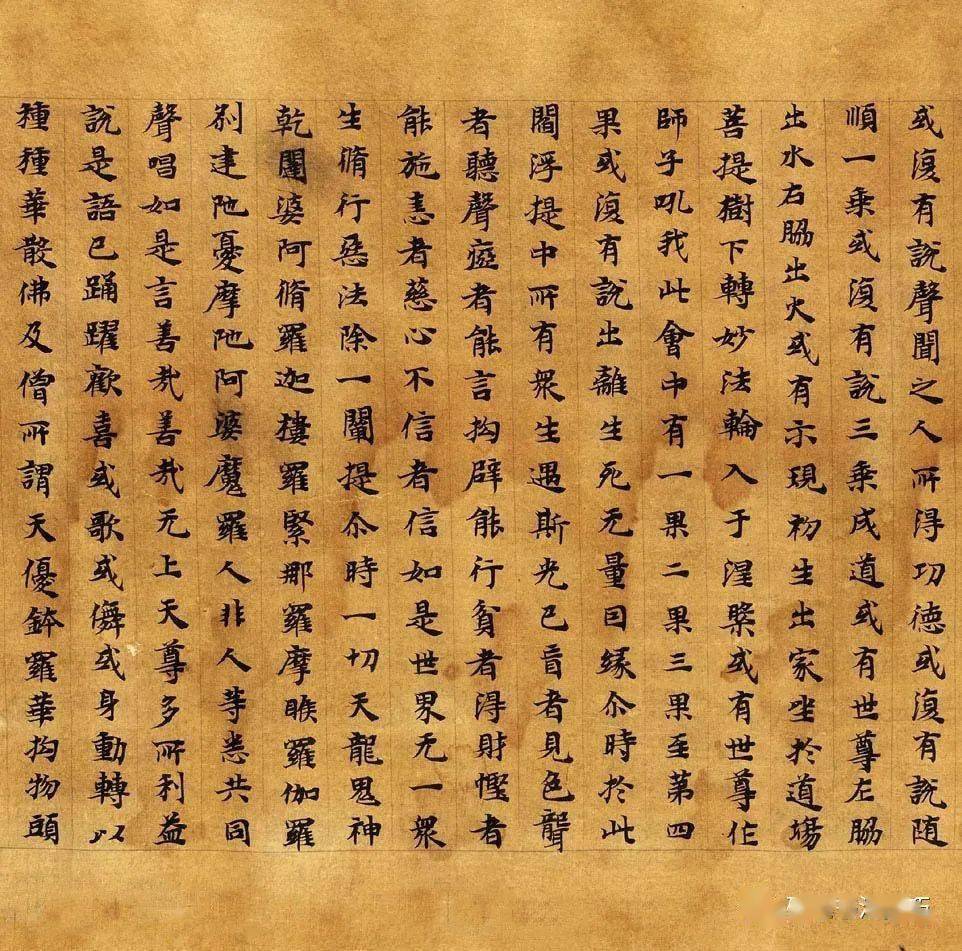 或復有說聲聞之人所得功德或復有說随
順一乗或復有說三乗成道或有世尊左脇
出水右脇出火或有示現初生出家坐於道場
菩提樹下轉妙法輪入于涅槃或有世尊作
師子吼我此會中有一果二果三果至第四
果或復有說出離生死无量因緣尒時於此
閻浮提中所有衆生遇斯光已盲者見色聾
者聽聲瘂者能言拘躃能行貧者得財慳者
能施恚者慈心不信者信如是世界无一衆
生脩行惡法除一闡提尒時一切天龍鬼神
乾闥婆阿脩羅迦樓羅緊那羅摩睺羅伽羅
刹建陁憂摩陁阿婆魔羅人非人等悉共同
聲唱如是言善哉善哉无上天尊多所利益
說是語已踊躍歡喜或歌或儛或身動轉以
種種華散佛及僧所謂天優鉢羅華拘物頭